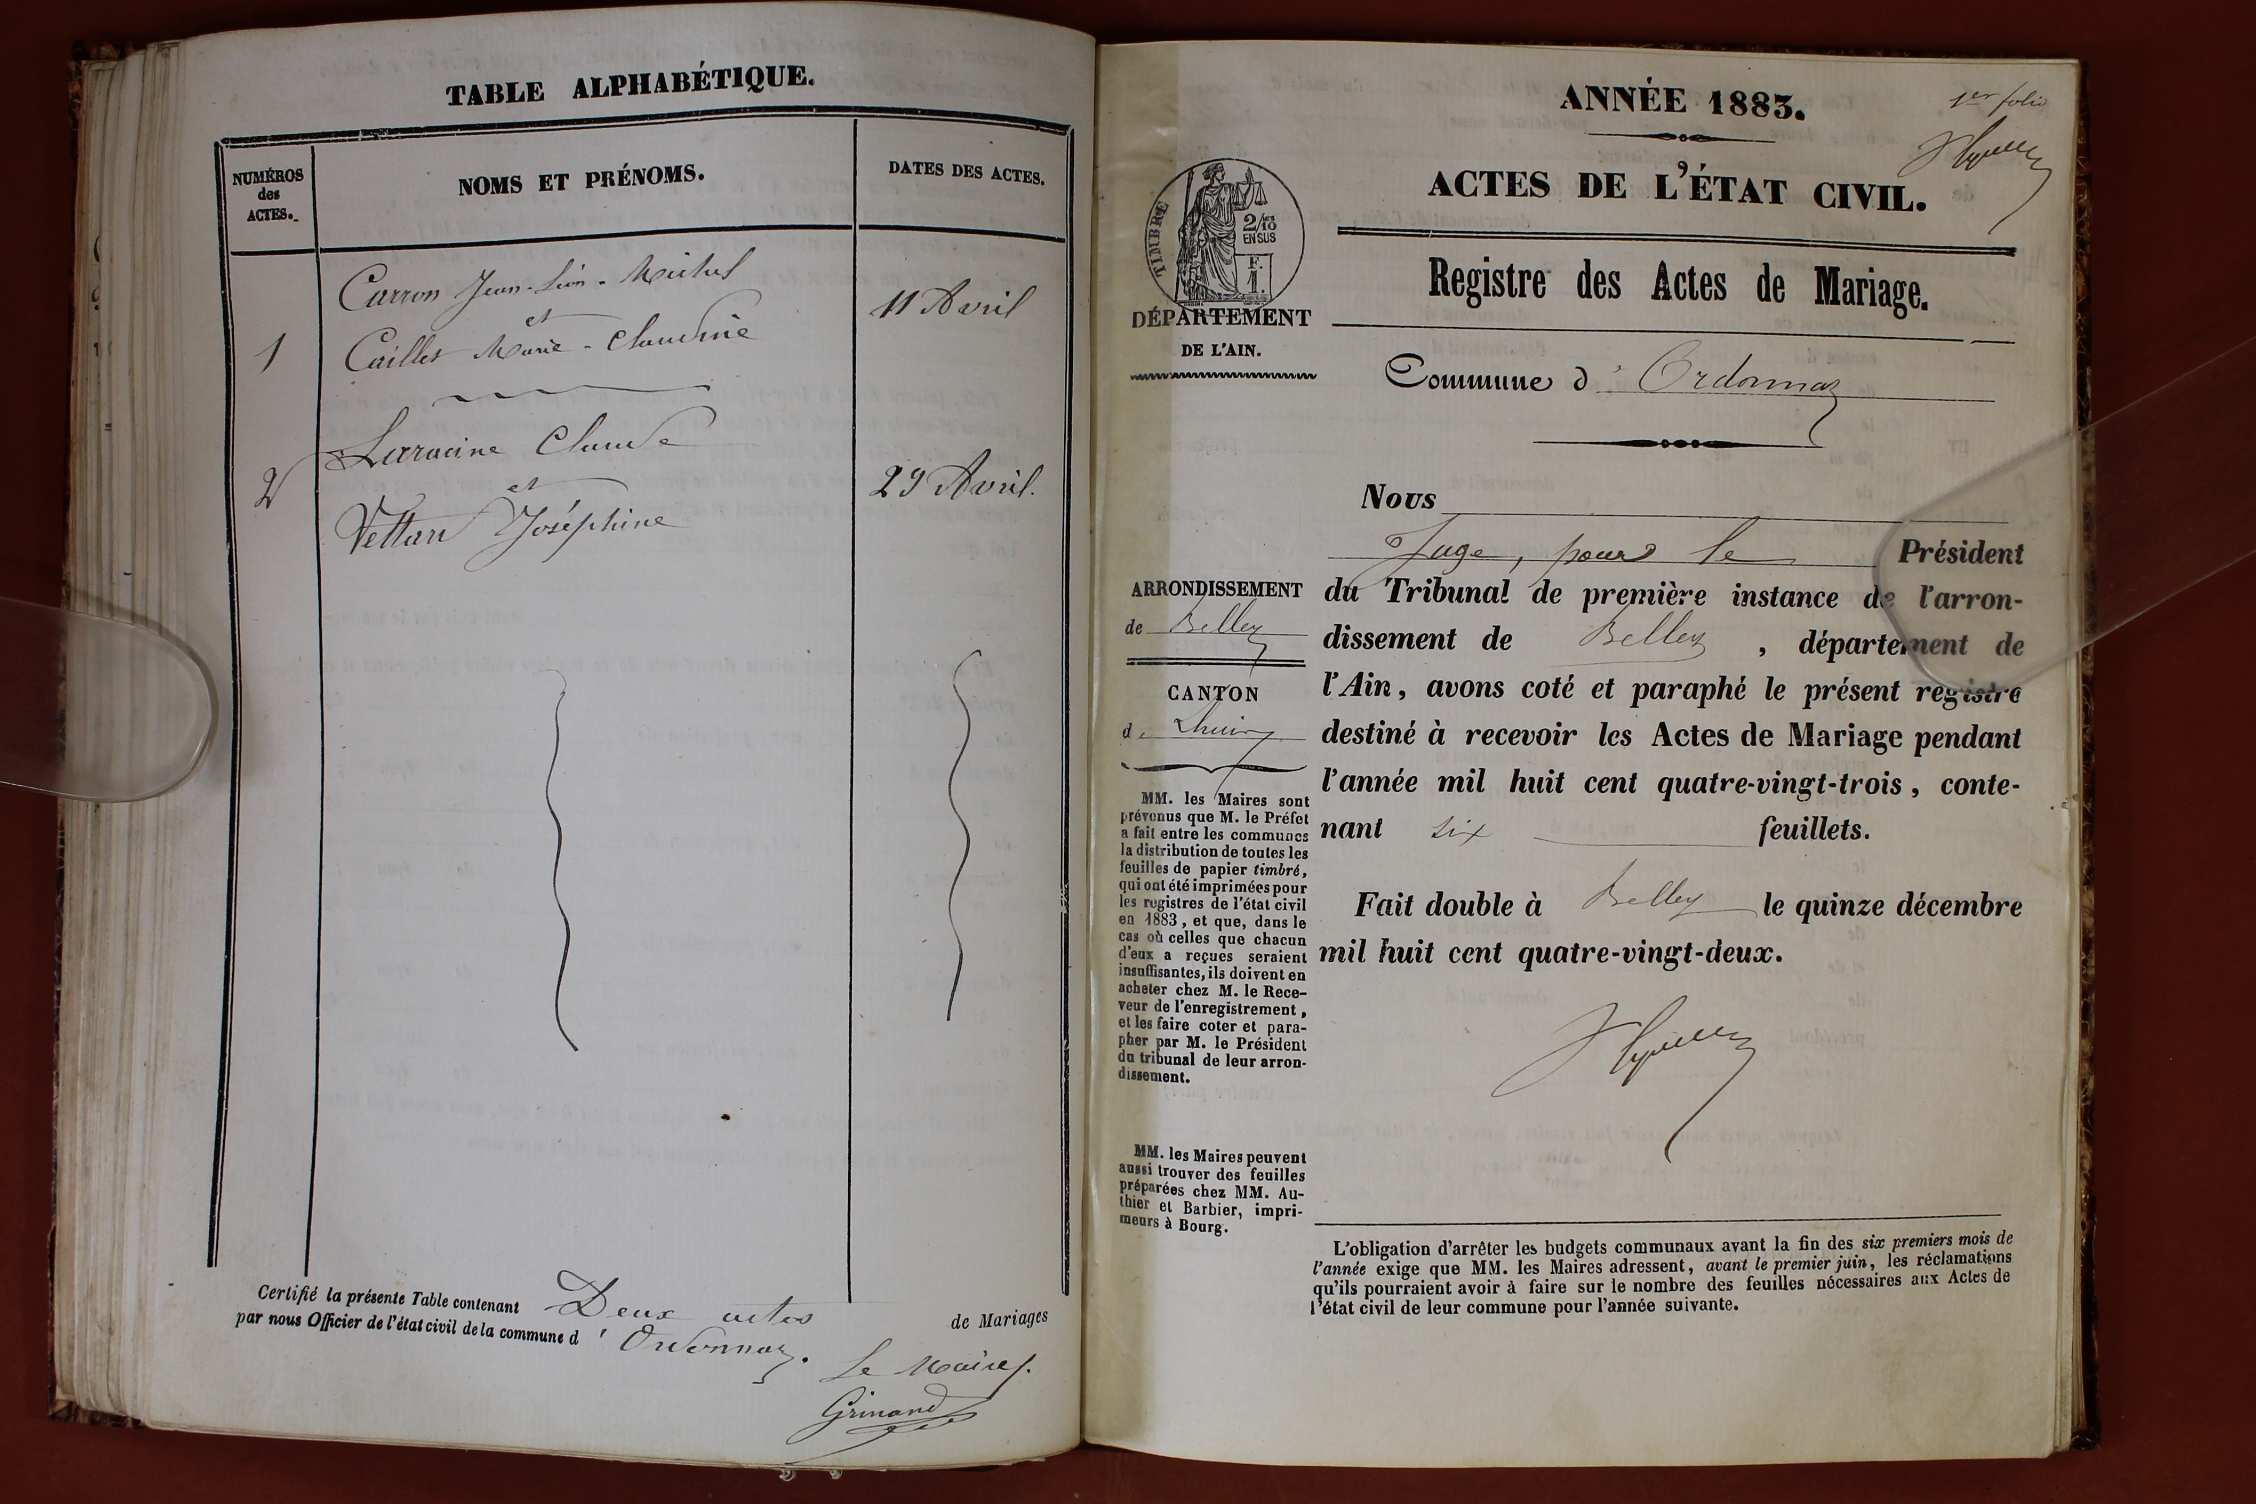 TABLE ALPHABÉTIQUE.
NUMÉROS
des
ACTES.
NOMS ET PRÉNOMS.
DATES DES ACTES.
Carron Jean-Léon-Michel
et
1
Caillet Marie-Claudine
11 Avril
Larracine Claude
2
et
29 Avril.
Vettard Joséphine
Certifié la présente Table contenant Deux actes de Mariages
par nous Officier de l'état civil de la commune d'Ordonnaz.
Le Maire.
Grinand
1er folio
ANNÉE 1883.
ACTES DE L'ÉTAT CIVIL.
TIMBRE
2/10
EN SUS
F.
1.
DÉPARTEMENT
DE L'AIN.
Registre des Actes de Mariage.
Commune d'Ordonnaz
Nous
Juge, pour le Président
du Tribunal de première instance de l'arron-
dissement de Belley, département de
l'Ain, avons coté et paraphé le présent registre
destiné à recevoir les Actes de Mariage pendant
l'année mil huit cent quatre-vingt-trois, conte-
nant six feuillets.
Fait double à Belley le quinze décembre
mil huit cent quatre-vingt-deux.
ARRONDISSEMENT
de Belley
CANTON
de Lhuis
MM. les Maires sont
prévenus que M. le Préfet
a fait entre les communes
la distribution de toutes les
feuilles de papier timbré,
qui ont été imprimées pour
les registres de l'état civil
en 1883, et que, dans le
cas où celles que chacun
d'eux a reçues seraient
insuffisantes, ils doivent en
acheter chez M. le Rece-
veur de l'enregistrement,
et les faire coter et para-
pher par M. le Président
du tribunal de leur arron-
dissement.
MM. les Maires peuvent
aussi trouver des feuilles
préparées chez MM. Au-
thier et Barbier, impri-
meurs à Bourg.
L'obligation d'arrêter les budgets communaux avant la fin des six premiers mois de
l'année exige que MM. les Maires adressent, avant le premier juin, les réclamations
qu'ils pourraient avoir à faire sur le nombre des feuilles nécessaires aux Actes de
l'état civil de leur commune pour l'année suivante.